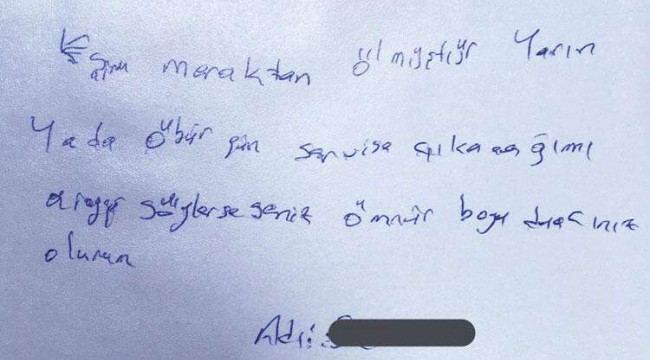 Eşim meraktan ölmüştür Yarın
Yada öbür gün servise çıkacağımı
arayıp söylerseseniz ömür boyu duacınız
olurum
Adı: